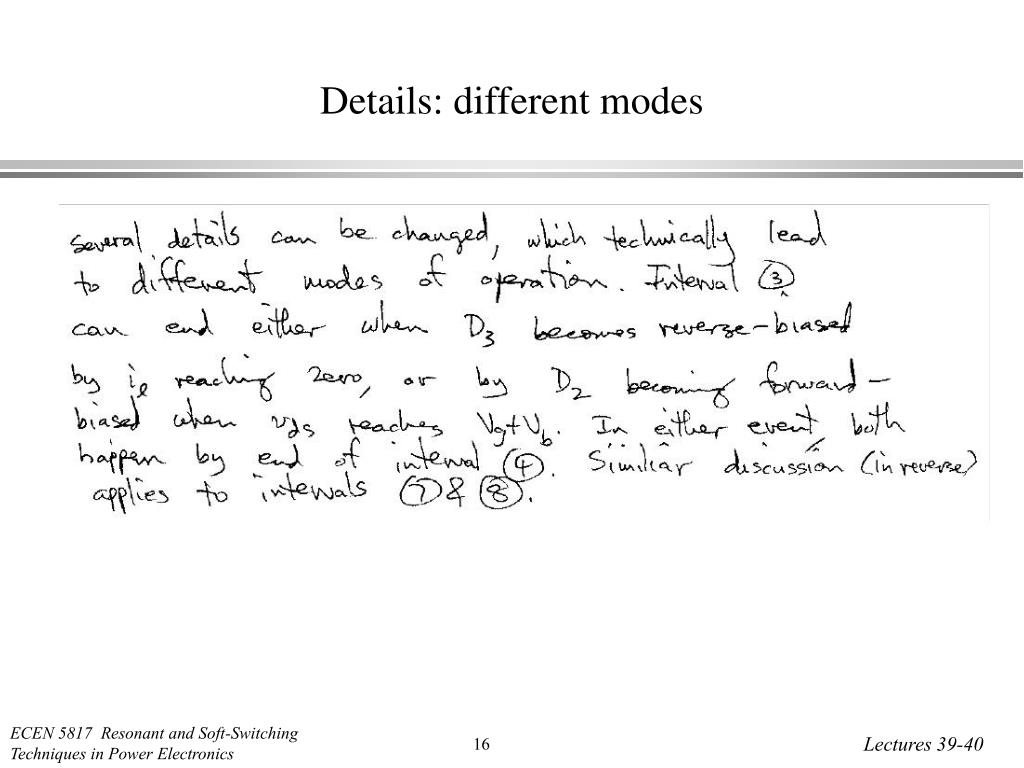 Details: different modes
Several details can be changed, which technically lead
to different modes of operation. Interval ③
can end either when D₃ becomes reverse-biased
by iₗ reaching zero, or by D₂ becoming forward-
biased when v₂ₛ reaches Vg+V_b. In either event both
happen by end of interval ④. Similiar discussion (in reverse)
applies to intervals ⑦ & ⑧.
ECEN 5817 Resonant and Soft-Switching
Techniques in Power Electronics
16
Lectures 39-40